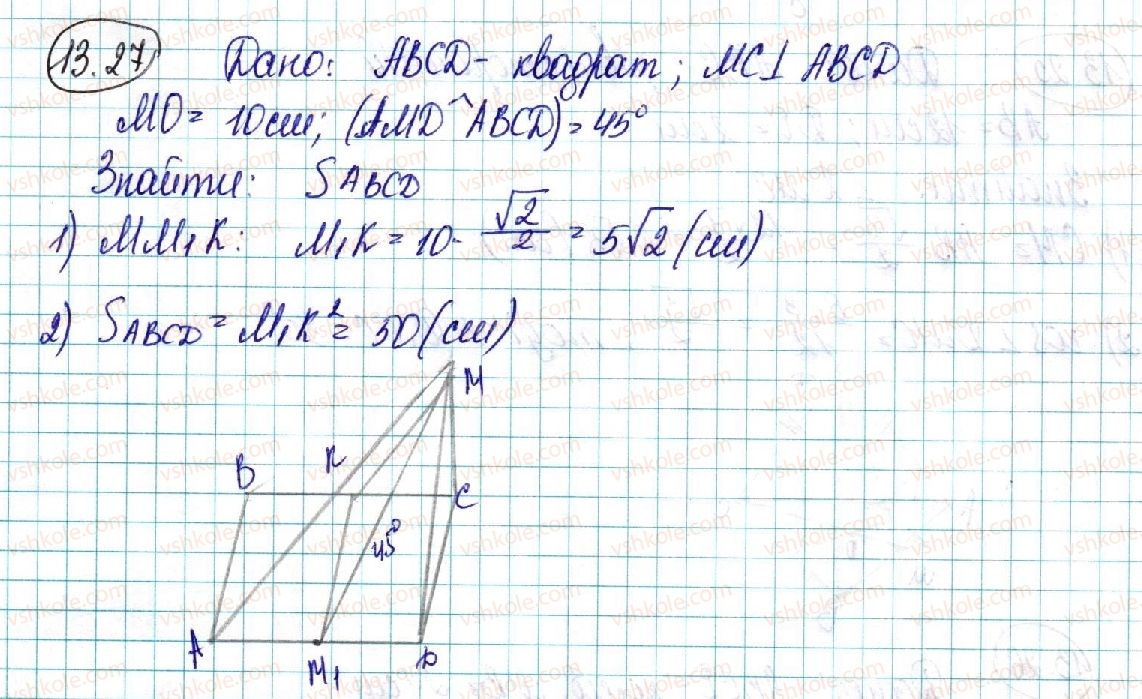 13.27 Дано: ABCD - квадрат; MC⊥ABCD
MD = 10см; (AMD^ABCD) = 45°
Знайти: SABCD
1) MM₁K: M₁K = 10·√2/2 = 5√2 (см)
2) SABCD = M₁K² = 50 (см)
M
B K C
45°
A M₁ D